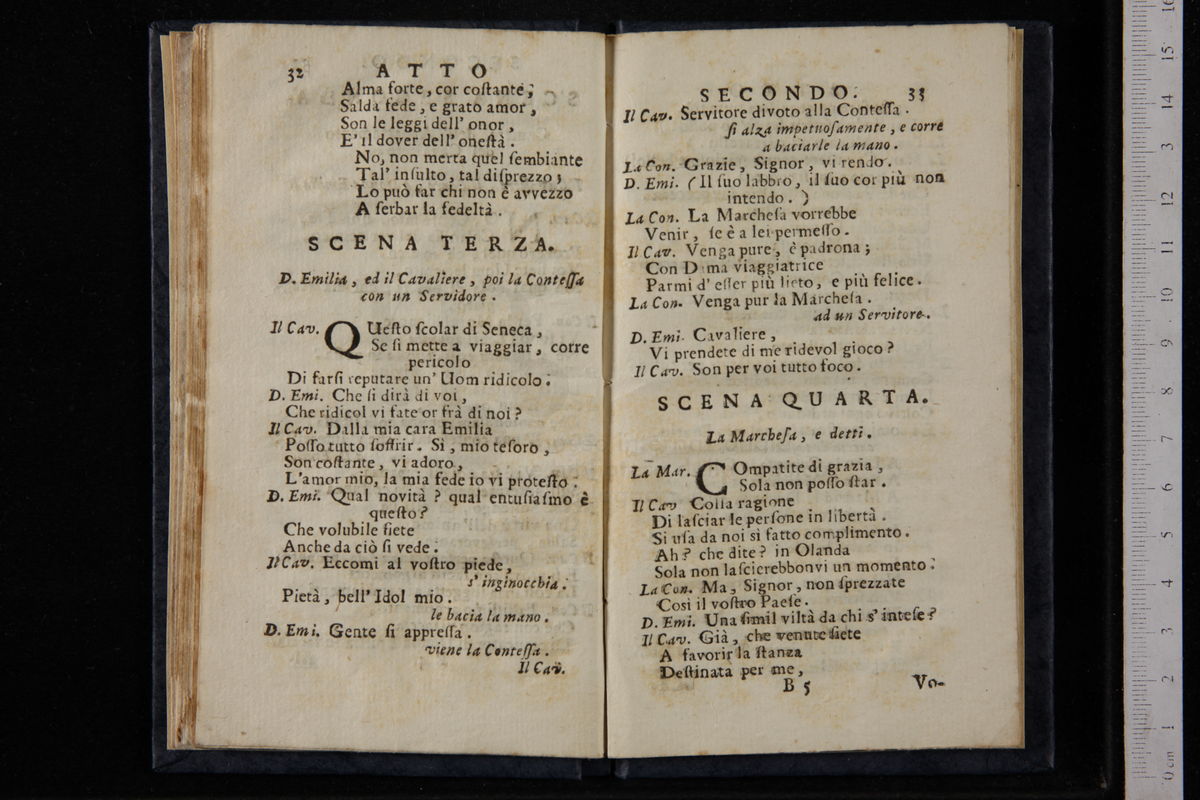 32 ATTO
Alma forte, cor coſtante;
Salda fede, e grato amor,
Son le leggi dell' onor,
E' il dover dell' oneſtà.
No, non merta quel ſembiante
Tal' inſulto, tal diſprezzo;
Lo può far chi non è avvezzo
A ſerbar la fedeltà.
SCENA TERZA.
D. Emilia, ed il Cavaliere, poi la Conteſſa
con un Servidore.
Il Cav. QUeſto ſcolar di Seneca,
Se ſi mette a viaggiar, corre
pericolo
Di farſi reputare un' Uom ridicolo.
D. Emi. Che ſi dirà di voi,
Che ridicol vi fate or frà di noi?
Il Cav. Dalla mia cara Emilia
Poſſo tutto ſoffrir. Si, mio teſoro,
Son coſtante, vi adoro,
L'amor mio, la mia fede io vi proteſto.
D. Emi. Qual novità? qual entuſiaſmo è
queſto?
Che volubile ſiete
Anche da ciò ſi vede.
Il Cav. Eccomi al voſtro piede,
s' inginocchia.
Pietà, bell' Idol mio.
le bacia la mano.
D. Emi. Gente ſi appreſſa.
viene la Conteſſa.
Il Cav.
SECONDO. 33
Il Cav. Servitore divoto alla Conteſſa.
ſi alza impetuoſamente, e corre
a baciarle la mano.
La Con. Grazie, Signor, vi rendo.
D. Emi. (Il ſuo labbro, il ſuo cor più non
intendo.)
La Con. La Marcheſa vorrebbe
Venir, ſe è a lei permeſſo.
Il Cav. Venga pure, è padrona;
Con Dama viaggiatrice
Parmi d' eſſer più lieto, e più felice.
La Con. Venga pur la Marcheſa.
ad un Servitore.
D. Emi. Cavaliere,
Vi prendete di me ridevol gioco?
Il Cav. Son per voi tutto foco.
SCENA QUARTA.
La Marcheſa, e detti.
La Mar. COmpatite di grazia,
Sola non poſſo ſtar.
Il Cav Colla ragione
Di laſciar le perſone in libertà.
Si uſa da noi sì fatto complimento.
Ah? che dite? in Olanda
Sola non laſcierebbonvi un momento.
La Con. Ma, Signor, non ſprezzate
Così il voſtro Paeſe.
D. Emi. Una ſimil viltà da chi s' inteſe?
Il Cav. Già, che venute ſiete
A favorir la ſtanza
Deſtinata per me,
B 5 Vo-